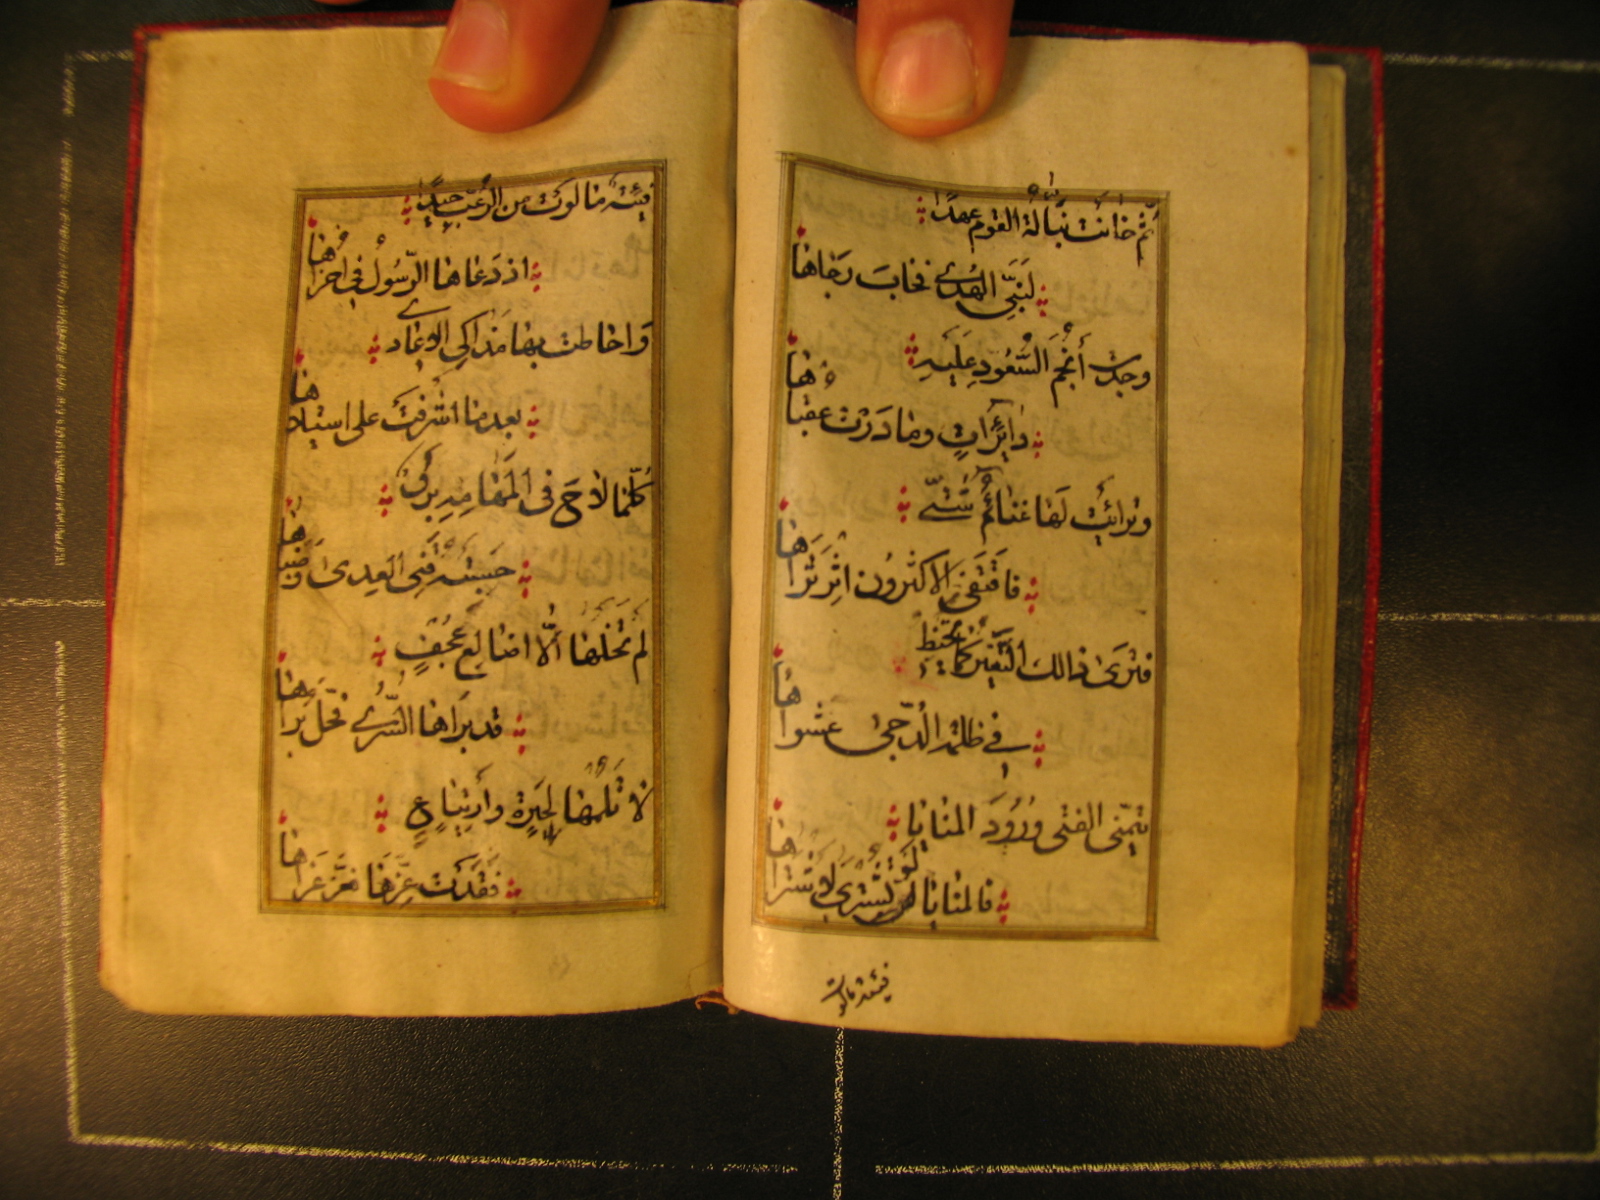 ثم خانت نبالة القوم عهدا
لنبي الهدى فخاب رجاها
وجدت أنجم السعود عليه
دائرات وما درت عقباها
وترائت لها غنائم شتى
فاقتفى الاكثرون اثر ثراها
فترى ذالك النفير كما يخبط
في ظلمة الدجى عشواها
يتمنى الفتى ورود المنايا
فالمنايا لو تشترى لاشتراها
فيئة مالوت
فيئة مالوت من الرعب جيدا
اذ دعاها الرسول في اخراها
واحاطت بها مذاكى الاعادى
بعدما اشرفت على استيلاها
كلما لاح فى المهامه برق
حسبته قنى العدى وضباها
لم تخلها الا اضالع عجف
قد براها السرى فحل براها
لا تلمها لحيرة وارتياع
فقدت عزها فعز عزاها